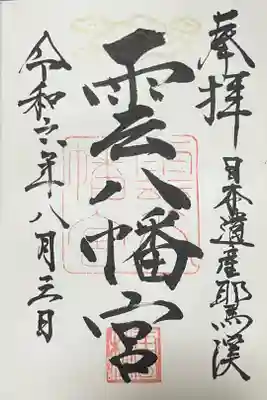 奉拝
日本遺産耶馬渓
雲八幡宮
令和六年八月三日